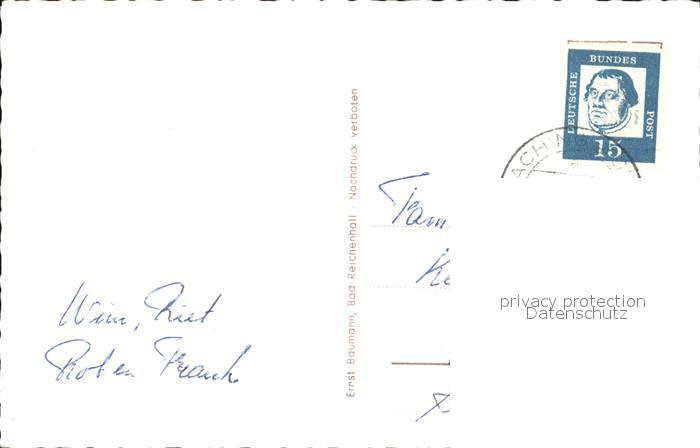 Wim, Riet
Rob en Frank
Ernst Baumann, Bad Reichenhall · Nachdruck verboten
DEUTSCHE
BUNDES
POST
15
ACHING
Fam
Ke
privacy protection
Datenschutz